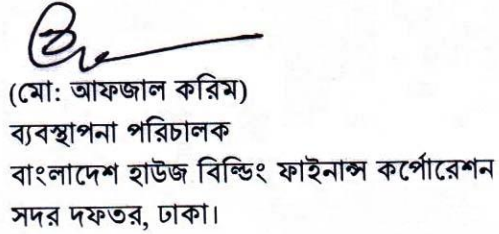 (মো: আফজাল করিম)
ব্যবস্থাপনা পরিচালক
বাংলাদেশ হাউজ বিল্ডিং ফাইনান্স কর্পোরেশন
সদর দফতর, ঢাকা।